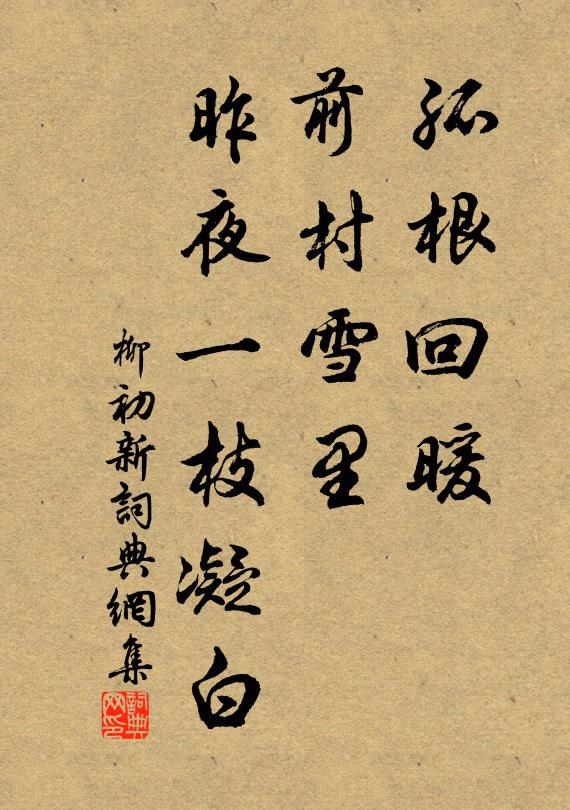 孤根回暖
前村雪里
昨夜一枝凝白
柳初新詞典網集
詞典網印